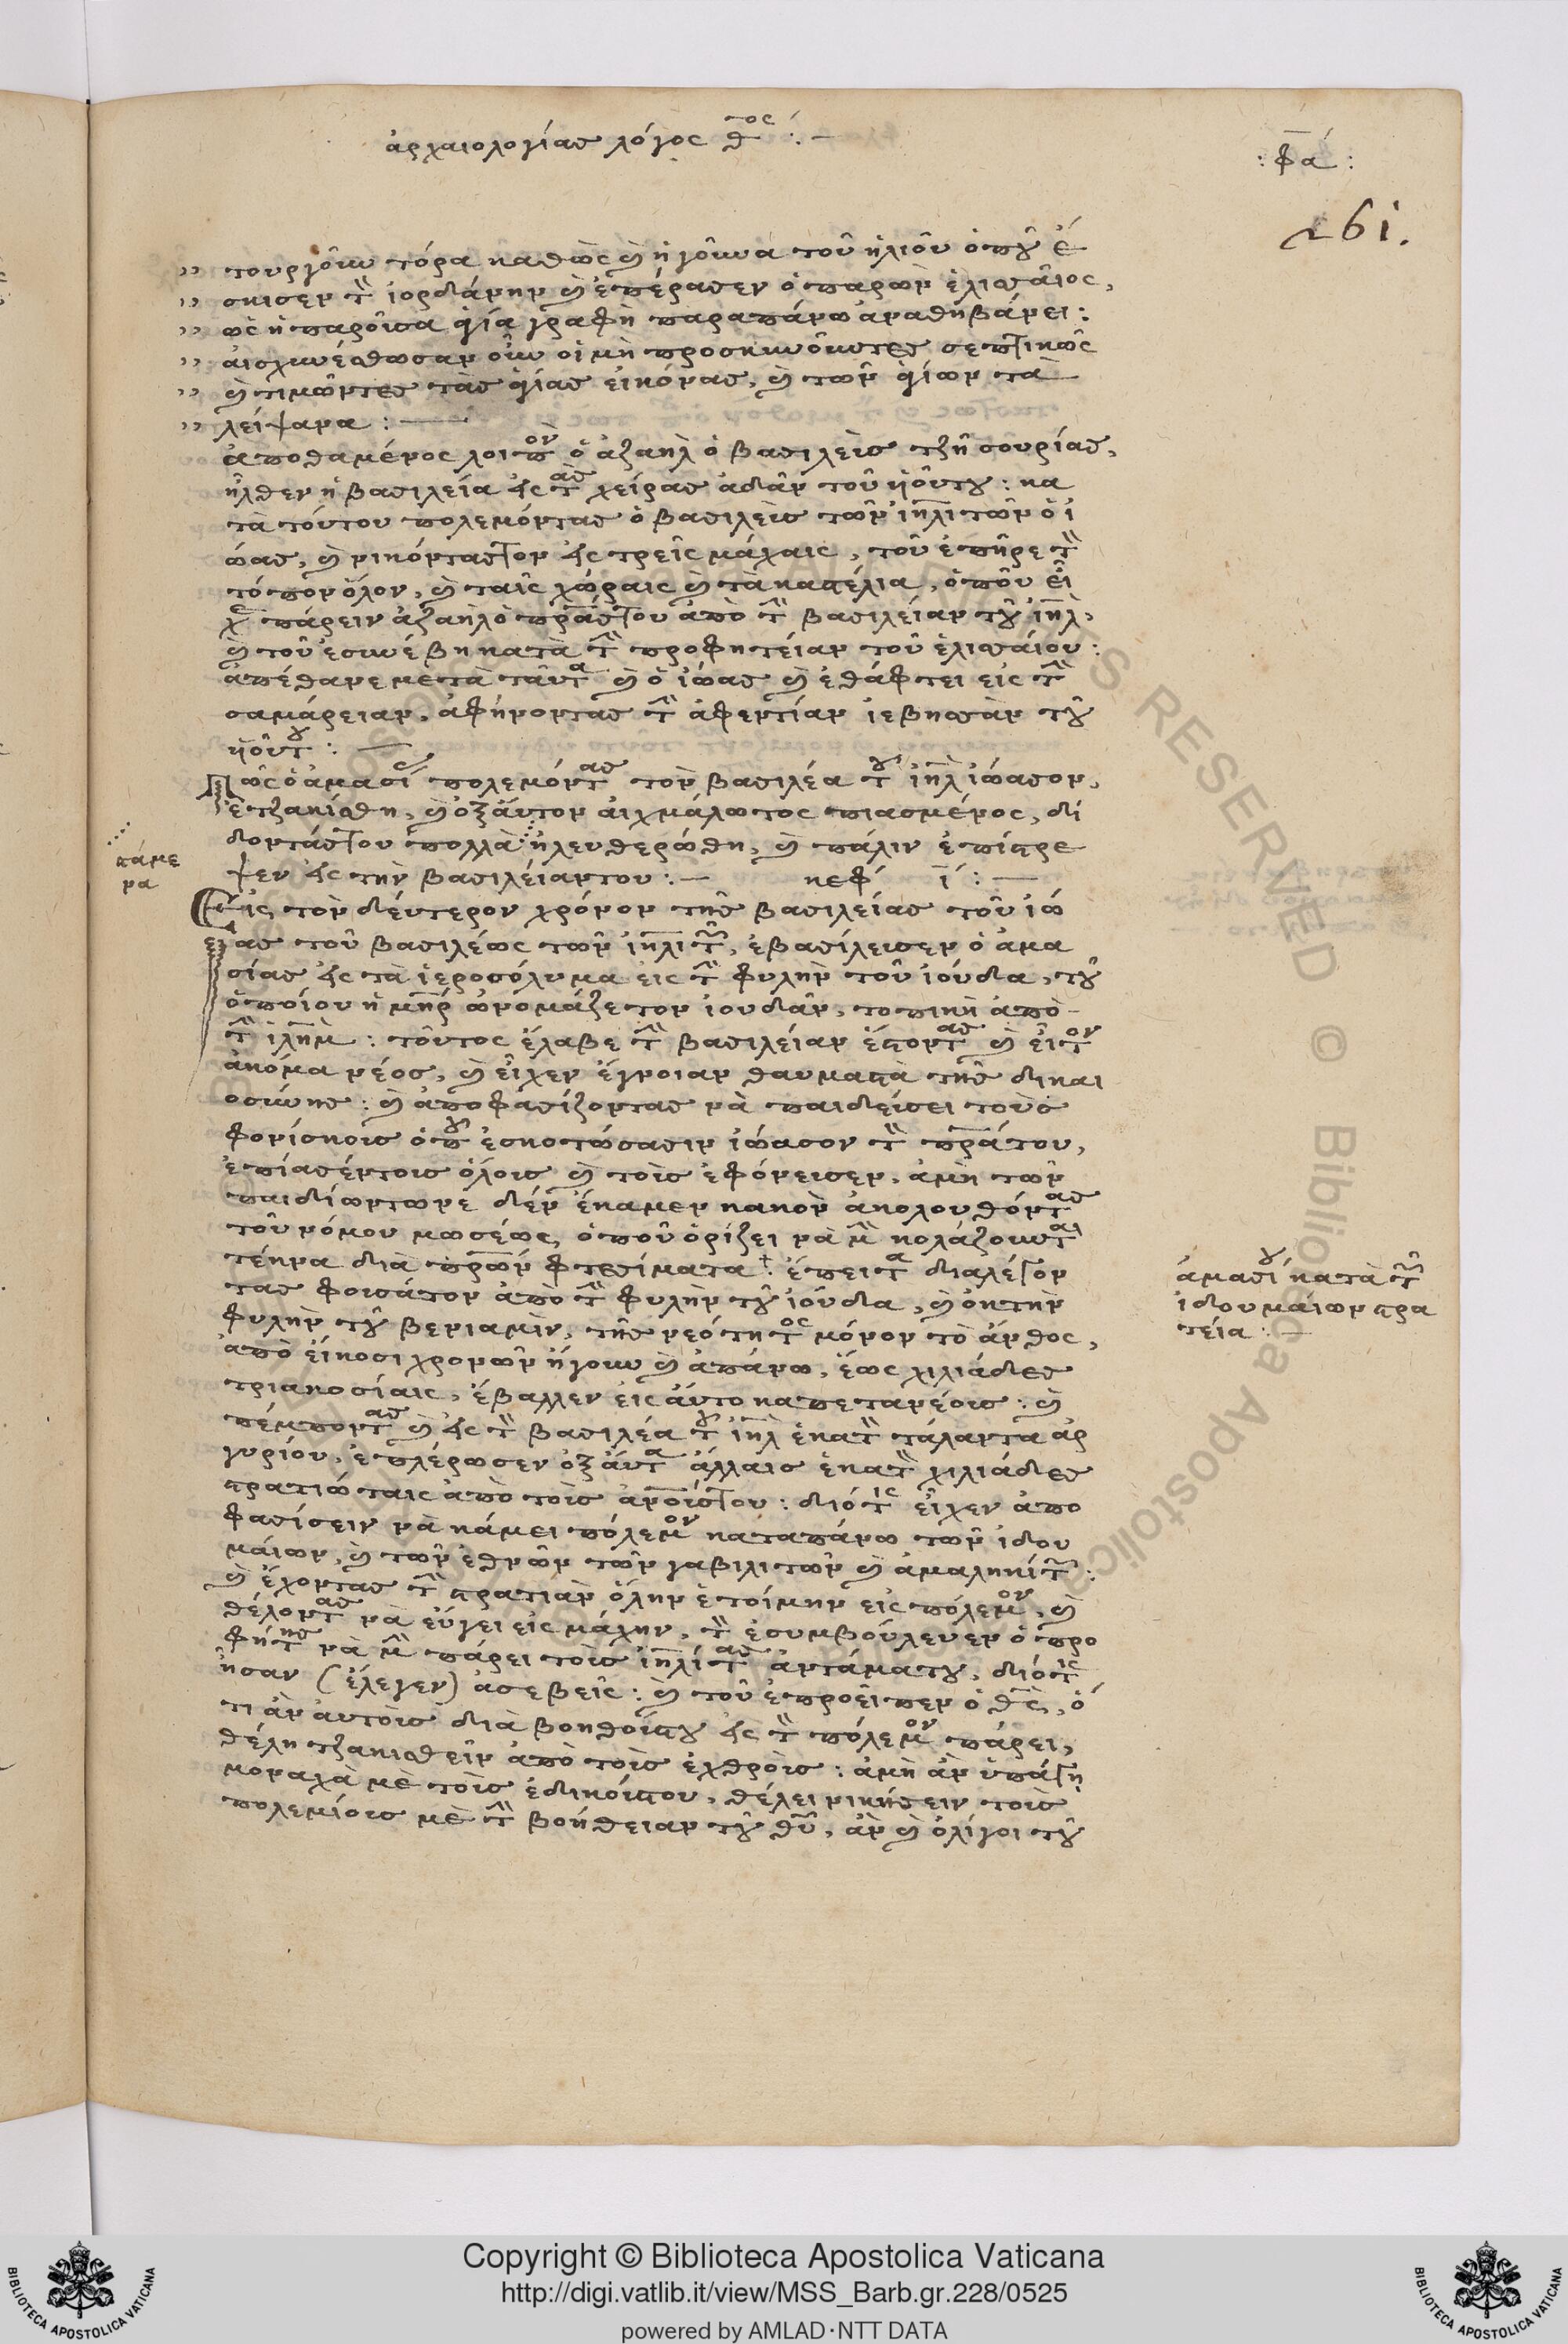 ἀρχαιολογίας λόγος θ̅ος :—
: φα :
261.
τουργοῦν τόρα καθὼς καὶ ἡ γοῦνα τοῦ ἡλιοῦ ὁποῦ ἔ
σκισεν τὸν ἰορδάνην καὶ ἐπέρασεν ὁ παρὼν ἐλισσαῖος,
ὡς ἡ παροῦσα ἁγία γραφὴ παραπάνω ἀναθηβάνει :
αἰσχυνέσθωσαν οὖν οἱ μὴ προσκυνοῦντες σεπτικῶς
καὶ τιμῶντες τὰς ἁγίας εἰκόνας, καὶ τῶν ἁγίων τὰ
λείψανα :—
ἀποθαμένος λοιπὸν ὁ ἀζαηλ ὁ βασιλεὺς τζῆ συρίας,
ἦλθεν ἡ βασιλεία εἰς τὰς χεῖρας ἀδὰν τοῦ ἡοῦντου : κα
τὰ τούτου πολεμόντας ὁ βασιλεὺς τῶν ἰηλιτῶν ὁ ἰ
ώας, καὶ νικόντας τον εἰς τρεῖς μάχαις, τοῦ ἐπῆρε τὸν
τόπον ὅλον, καὶ ταῖς χώραις καὶ τὰ καστέλια, ὁποῦ εἶ
χε πάρειν ἀζαὴλ ὁ πρᾶς του ἀπὸ τὴν βασιλείαν τοῦ ἰηλ,
καὶ τοῦ ἐσυνέβη κατὰ τὴν προφητείαν τοῦ ἐλισσαίου :
ἀπέθανε μετὰ ταῦτα καὶ ὁ ἰώας καὶ ἐθάφτει εἰς τὴν
σαμάρειαν, ἀφήνοντας τὴν ἀφεντίαν ἰεβηοσὰν τοῦ
ἡοῦντου :—
Πῶς ὁ ἀμασίας πολεμόντας τὸν βασιλέα τοῦ ἰηλ ἰώασον,
ἐτζακίσθη, καὶ ὀξαῦτον αἰχμάλωτος πιασμένος, δί
δοντάς του πολλὰ ἠλευθερώθη, καὶ πάλιν ἐπίστρε
ψεν εἰς τὴν βασιλείαν του :— κεφ ι :—
κάμε
να
Εἰς τὸν δεύτερον χρόνον τῆς βασιλείας τοῦ ἰώ
ας τοῦ βασιλέως τῶν ἰηλιτῶν, ἐβασίλευσεν ὁ ἀμα
σίας εἰς τὰ ἱεροσόλυμα εἰς τὴν φυλὴν τοῦ ἰούδα, τοῦ
ὁποίου ἡ μηρ ὠνομάζετον ἰουδὰν, τοπικὴ ἀπὸ
τὴν ἰλημ : τοῦτος ἔλαβε τὴν βασιλείαν ἔστοντας καὶ εἶτον
ἀκόμα νέος, καὶ εἶχεν ἔγνοιαν θαυμαστὰ τῆς δικαι
οσύνης : καὶ ἀποφασίζοντας νὰ παιδεύσει τοὺς
φονίσκους ὁποῦ ἐσκοτώσασιν ἰώασον τὸν πρα του,
ἐπίασέν τους ὅλους καὶ τοὺς ἐφόνευσεν, ἀμὴ τῶν
παιδίων τωνε δὲν ἔκαμεν κακὸν ἀκολουθόντας
τοῦ νόμου μωσέως, ὁποῦ ὁρίζει νὰ μὴν κολάζουνται
τέκνα διὰ πρων φτεσίματα : ἔπειτα διαλέγον
τας φουσάτον ἀπὸ τὴν φυλὴν τοῦ ἰούδα, καὶ ὀκ τὴν
φυλὴν τοῦ βενιαμὶν, τῆς νεότητος μόνον τὸ ἄνθος,
ἀπὸ εἴκοσι χρονῶν ἤγουν καὶ ἀπάνω, ἕως χιλιάδες
τριακοσίαις, ἔβαλλεν εἰς αὐτὸ καπεταναίους : καὶ
πέμποντας καὶ εἰς τὸν βασιλέα τοῦ ἰηλ ἑκατὸν τάλαντα ἀρ
γυρίου, ἐπλέρωσεν ὀξαῦτα ἄλλαις ἑκατὸν χιλιάδες
στρατιώταις ἀπὸ τοὺς ἀνους του : διότις εἶχεν ἀπο
φασίσειν νὰ κάμει πόλεμον καταπάνω τῶν ἰδου
μαίων, καὶ τῶν ἐθνῶν τῶν γαβιλιτῶν καὶ ἀμαληκιτῶν :
καὶ ἔχοντας τὴν στρατιὰν ὅλην ἑτοίμην εἰς πόλεμον, καὶ
θέλοντας νὰ εὔγει εἰς μάχην, τὸν ἐσυμβούλευεν ὁ προ
φήτης νὰ μὴν πάρει τοὺς ἰηλίτας ἀντάμα του, διότις
ἦσαν (ἔλεγεν) ἀσεβεῖς : καὶ τοῦ ἐπροεῖπεν ὁ θς, ὅ
τι ἂν αὐτοὺς διὰ βοηθούς του εἰς τὸν πόλεμον πάρει,
θέλη τζακισθεῖν ἀπὸ τοὺς ἐχθρούς : ἀμὴ ἂν ὑπάγη
μοναχὰ μὲ τοὺς ἐδικούς του, θέλει νικήσειν τοὺς
πολεμίους μὲ τὴν βοήθειαν τοῦ θυ, ἂν καὶ ὀλίγοι τοῦ
ἀμασίου κατὰ τῶν
ἰδουμαίων στρα
τεία :—
Copyright © Biblioteca Apostolica Vaticana
http://digi.vatlib.it/view/MSS_Barb.gr.228/0525
powered by AMLAD·NTT DATA
BIBLIOTECA APOSTOLICA VATICANA
BIBLIOTECA APOSTOLICA VATICANA